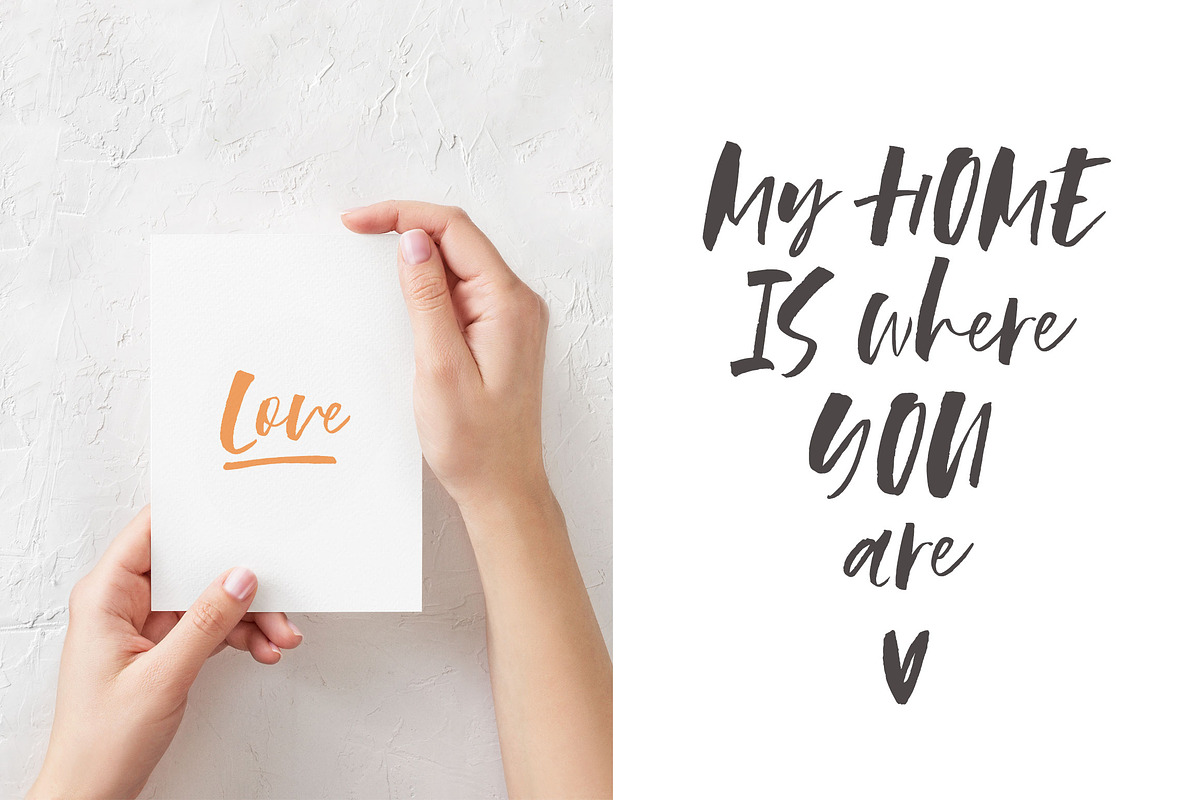 Love
My HOME
IS where
YOU
are